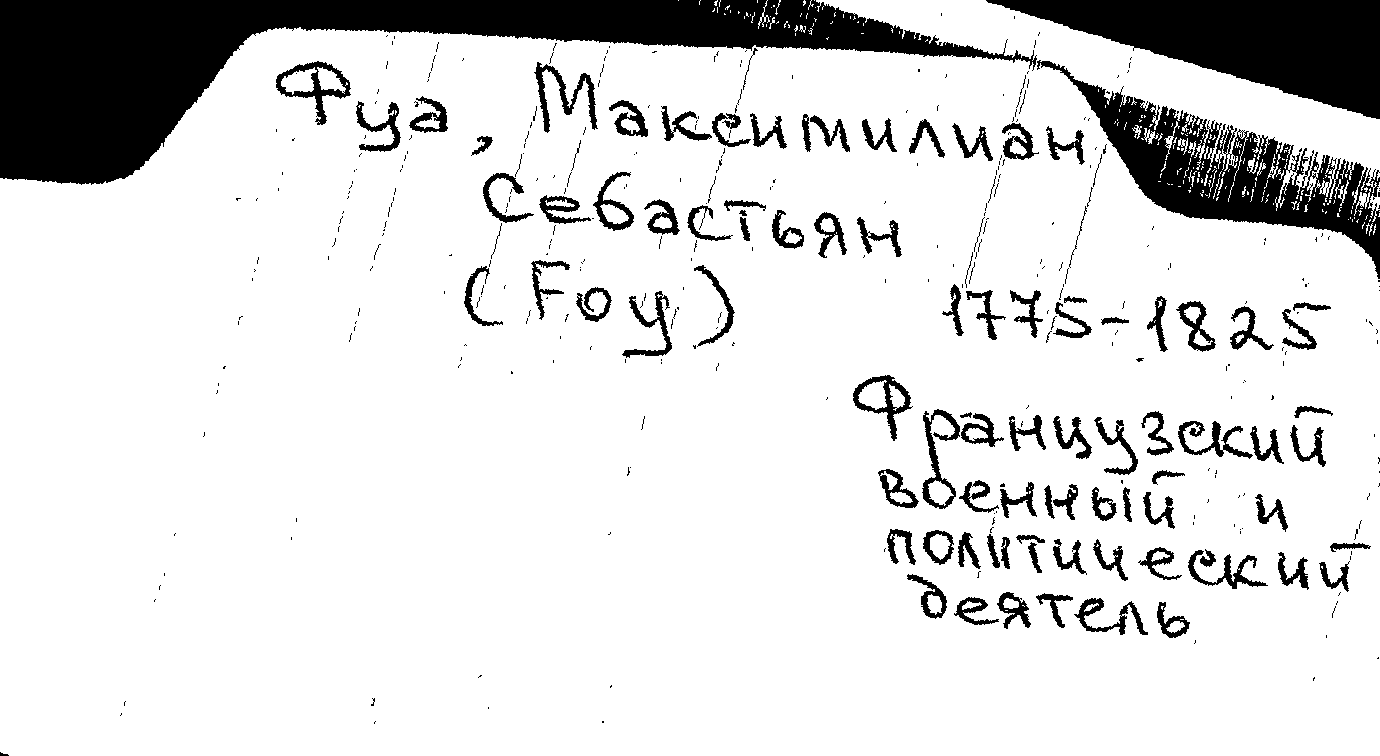 Фуа, Максимилиан
Себастьян
(Foy) 1775-1825
Французский
военный и
политический
деятель